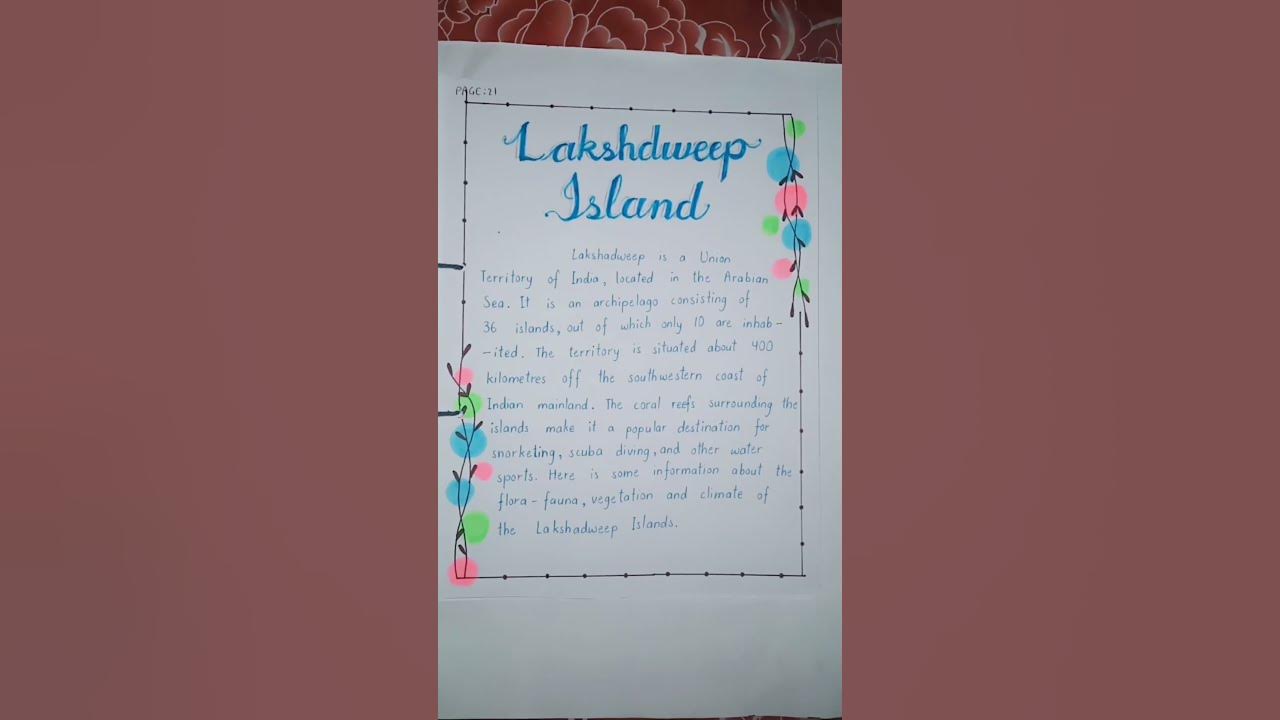 PAGE:21
Lakshdweep
Island
Lakshadweep is a Union
Territory of India, located in the Arabian
Sea. It is an archipelago consisting of
36 islands, out of which only 10 are inhab-
-ited. The territory is situated about 400
kilometres off the southwestern coast of
Indian mainland. The coral reefs surrounding the
islands make it a popular destination for
snorkeling, scuba diving, and other water
sports. Here is some information about the
flora-fauna, vegetation and climate of
the Lakshadweep Islands.